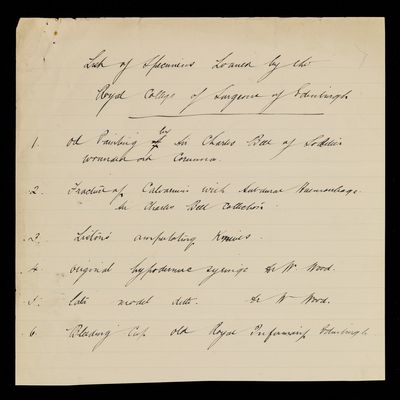 List of Specimens Loaned by the
Royal College of Surgeons of Edinburgh
1. Old Painting by Sir Charles Bell of Soldiers
wounded at Corunna.
2. Fracture of Calvarium with Subdural Haemorrhage.
Sir Charles Bell Collection
3. Liston's amputating Knives.
4. original hypodermic syringe Dr W. Wood.
5. late model ditto. Dr W Wood.
6. Bleeding Cup old Royal Infirmary Edinburgh